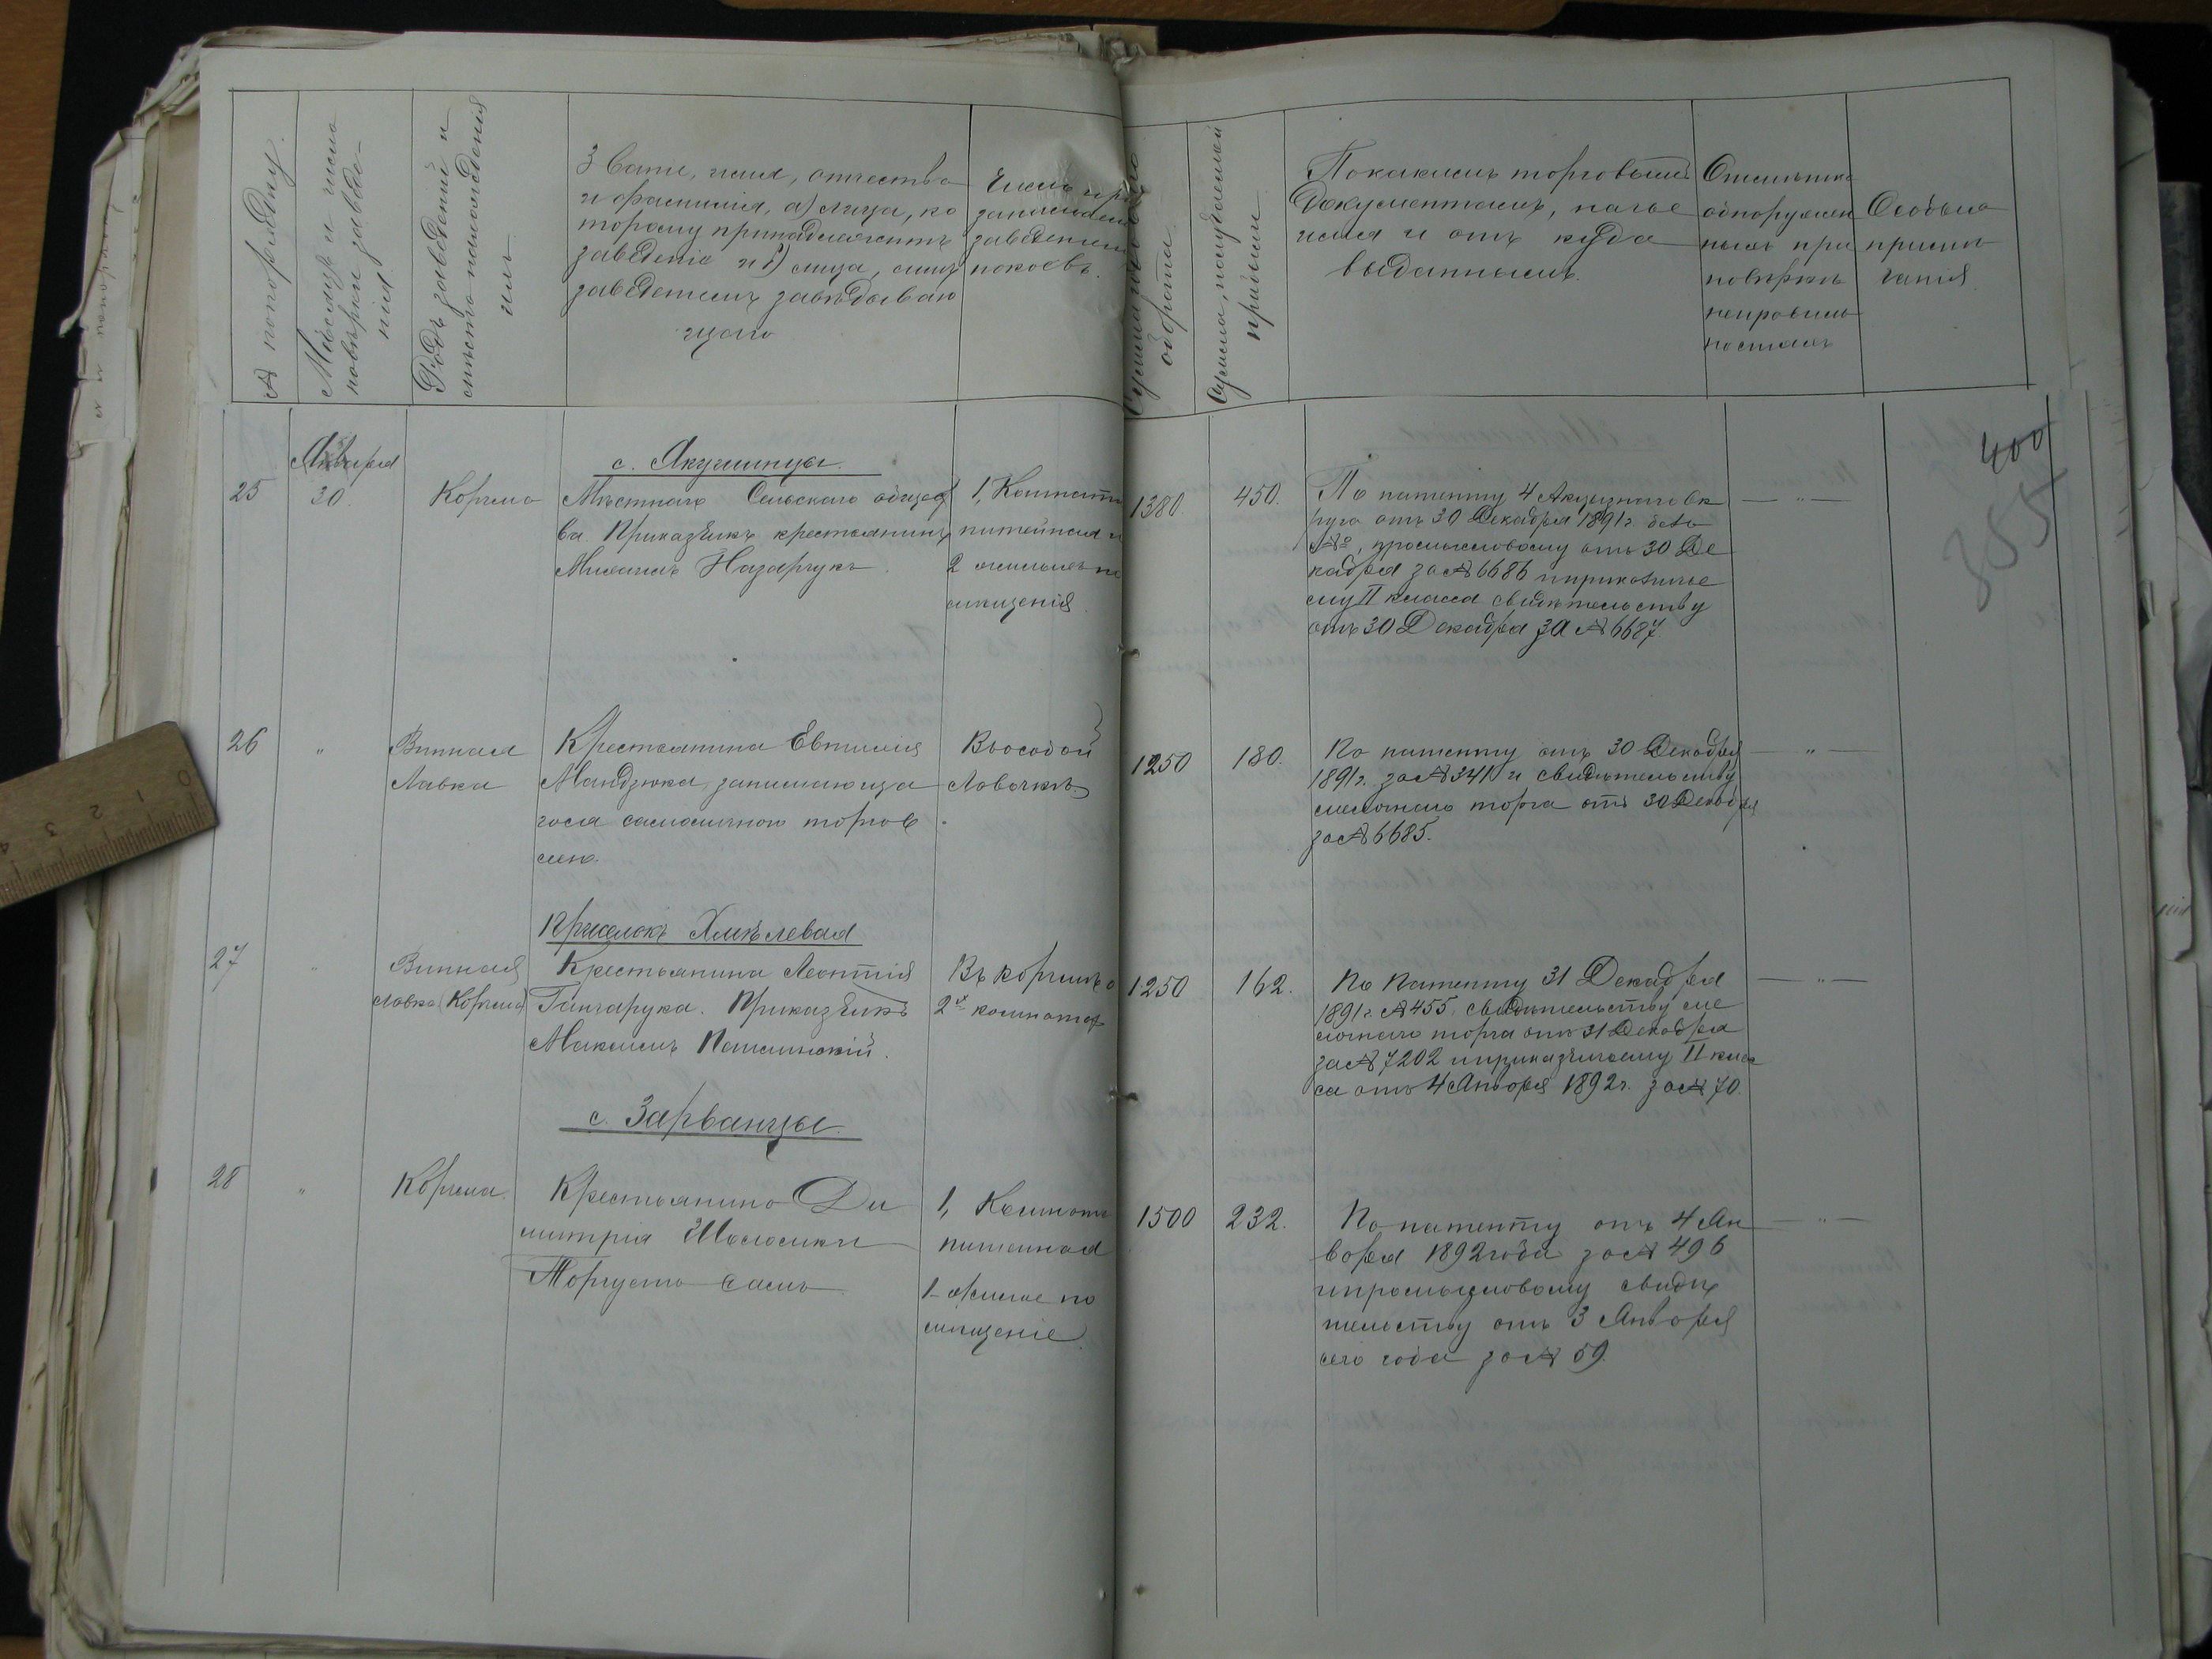 № по порядку.
Мѣсяцъ и число
повѣрки заведе-
нія
Родъ заведеній и
мѣсто нахожденія
ихъ
Званіе, имя, отчество
и фамилія, а) лица, ко
торому принадлежитъ
заведеніе и б) лица, симъ
заведеніемъ завѣдываю
щаго
Число
занимаем
заведеніемъ
покоевъ.
оборота
Сумма, получаемой
прибыли
По какимъ торговымъ
документамъ, на чье
имя и отъ куда
выданнымъ.
Отмѣтка
обнаружен
ныхъ при
повѣркѣ
неправиль
ностяхъ
Особыя
примѣ
чанія
400
355
с. Якушинцы.
25
Января
30.
Корчма
Мѣстнаго Сельскаго общест
ва. Прикащикъ крестьянинъ
Михаилъ Назарчукъ.
1, Комната
питейная и
2 жилыхъ по
мѣщенія.
1380
450.
По патенту 4 Акцизнаго Ок
руга отъ 30 Декабря 1891 г. безъ
№, промысловому отъ 30 Де
кабря за № 6686 и приказчичье
му II класса свидѣтельству
отъ 30 Декабря за № 6687.
— " —
26
"
Винная
Лавка
Крестьянина Евтихія
Мандзюка, занимающа
гося самоличною торгов
лею.
Въ особой
Лавочкѣ
1250
180.
По патенту отъ 30 Декабря
1891 г. за № 341 и свидѣтельству
мелочнаго торга отъ 30 Декабря
за № 6685.
— " —
Приселокъ Хмѣлевая
27
"
Винная
лавка (Корчма)
Крестьянина Леонтія
Ганчарука. Приказчикъ
Максимъ Пашинскій.
Въ корчмѣ о
2х комнатах
1250
162.
По Патенту 31 Декабря
1891 г. № 455. свидѣтельству ме
лочнаго торга отъ 31 Декабря
за № 7202 и приказчичьему II клас
са отъ 4 Января 1892 г. за № 70.
— " —
с. Зарванцы.
28
"
Корчма.
Крестьянина Ди
митрія
Торгуетъ самъ
1, Комната
питейная
1 жилое по
мѣщеніе.
1500
232.
По патенту отъ 4 Ян
варя 1892 года за № 496
и промысловому свидѣ
тельству отъ 3 Января
сего года за № 59.
— " —